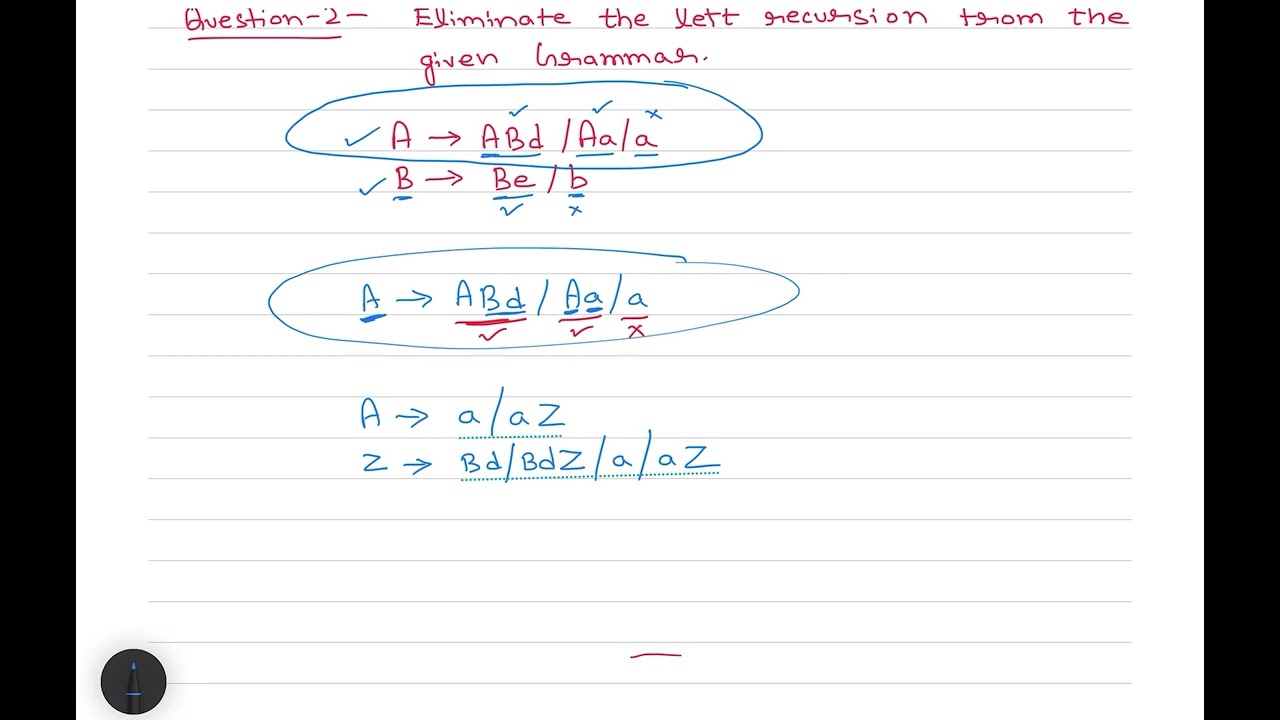 Question-2- Eliminate the left recursion from the
given Grammar.
A → ABd / Aa / a
B → Be / b
A → ABd / Aa / a
A → a / aZ
Z → Bd / BdZ / a / aZ